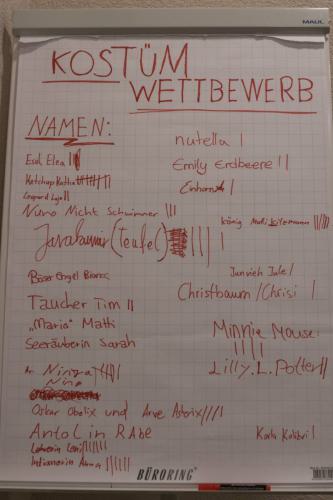 MAUL
KOSTÜM
WETTBEWERB
NAMEN:
Esel Elea
Ketchup Katha
Leopard Luja
Nuno Nicht Schwimmer
(Teufel)
Böser Engel Bianca
Taucher Tim
"Mario" Matti
Seeräuberin Sarah
Ninja
Nino
Oskar Obelix und Arve Asterix
Antolin Rabe
Leni
Indianerin Anna
nutella
Emily Erdbeere
Einhorn
König
Jule
Christbaum/Chrisi
Minnie Mouse
Lilly.L.Potter
Karla Kolibri
BÜRORING